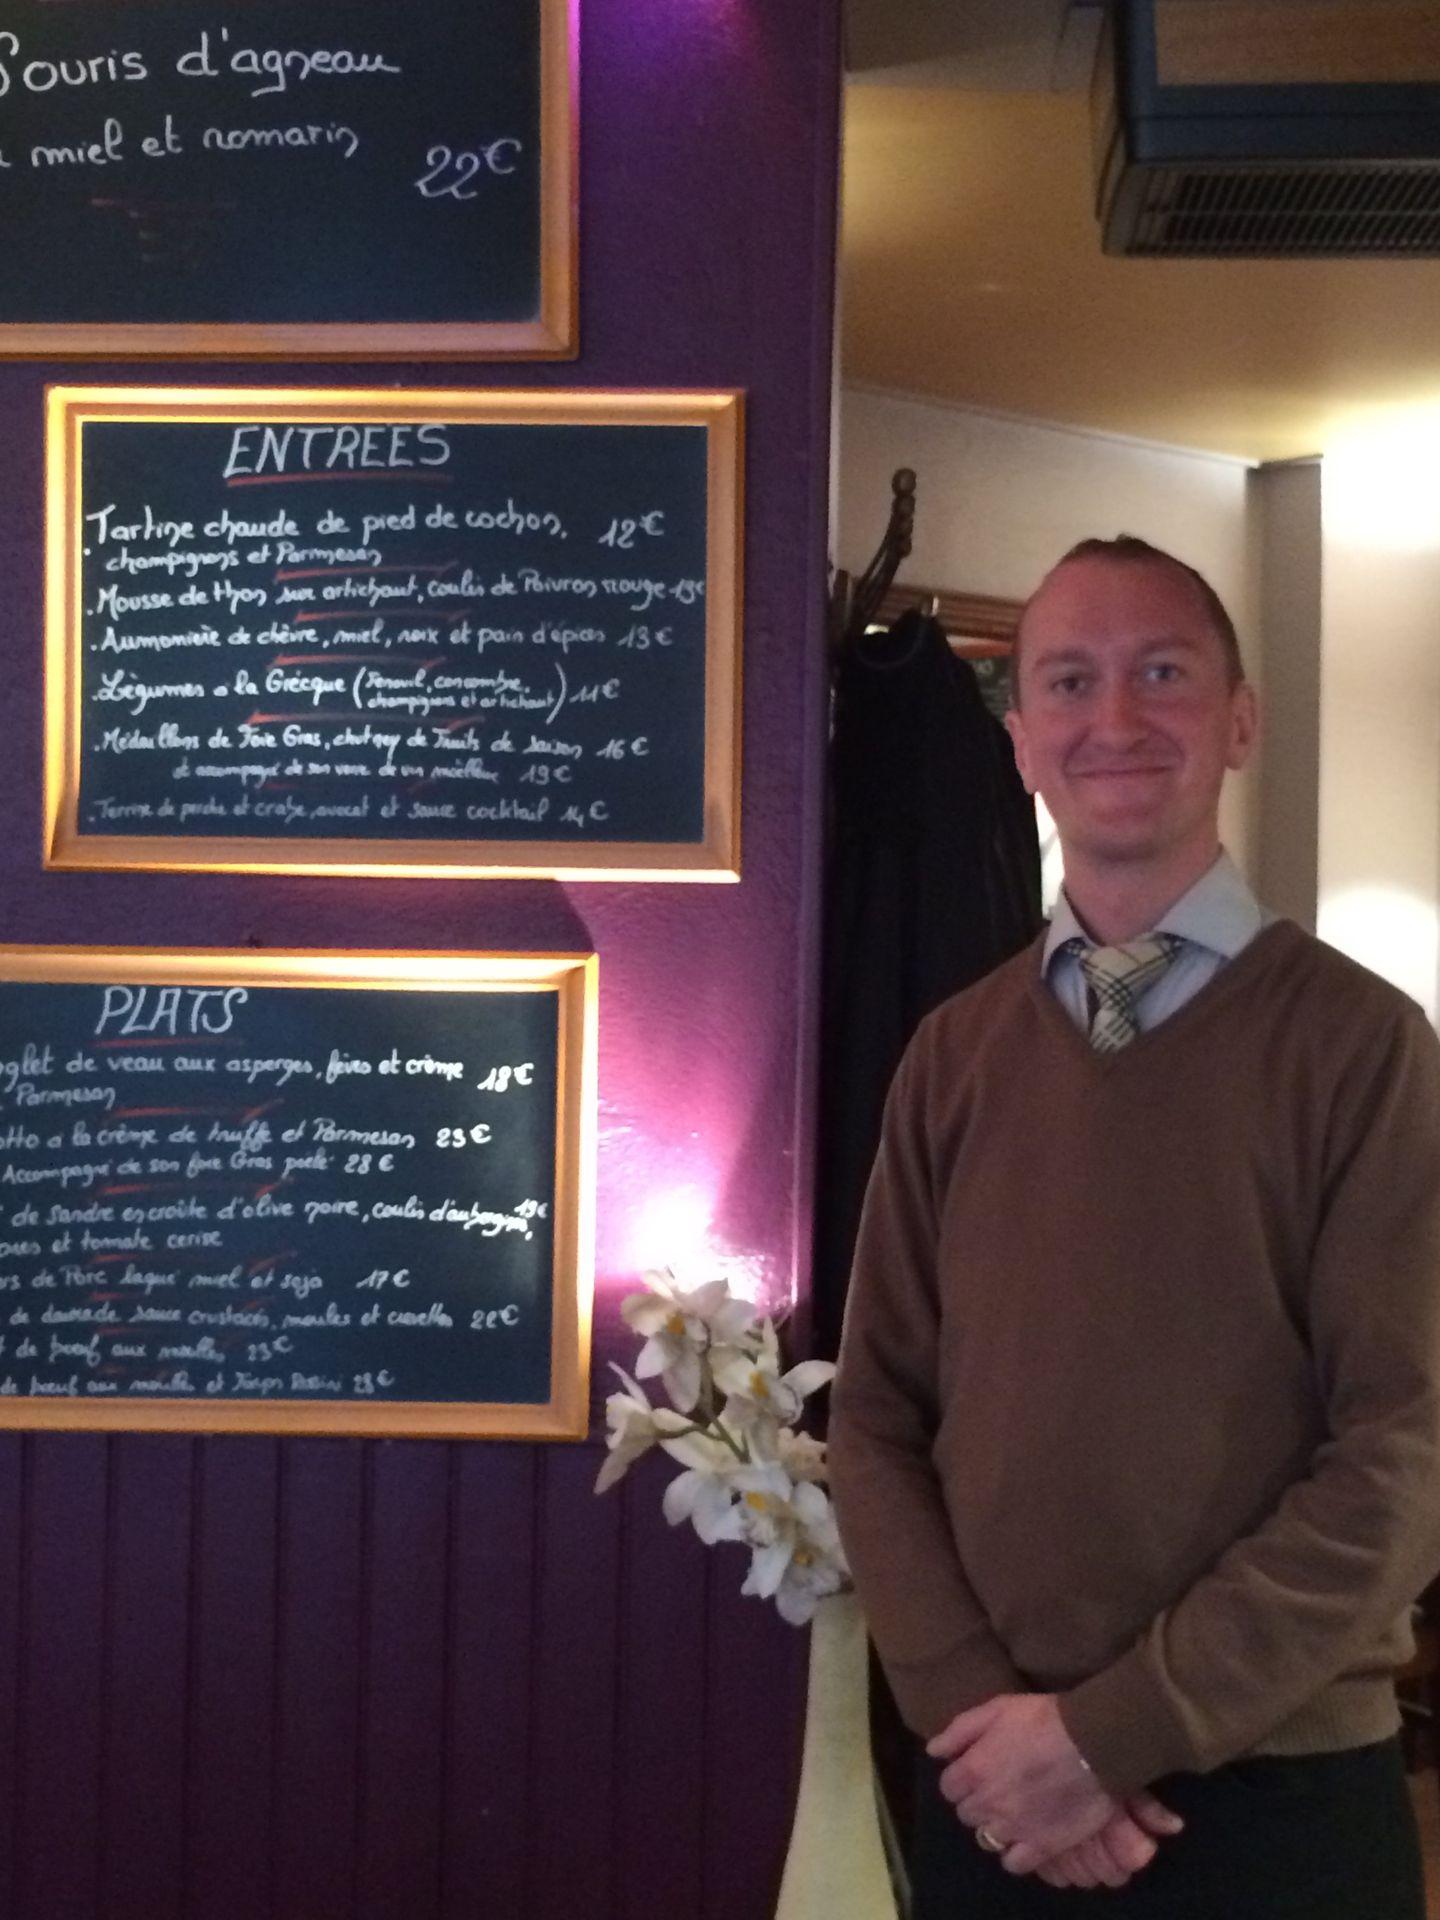 Souris d'agneau
miel et romarin
22€
ENTREES
Tartine chaude de pied de cochon, 12€
champignons et Parmesan
.Mousse de thon sur artichaut, coulis de Poivron rouge 13€
.Aumonière de chèvre, miel, noix et pain d'épices 13€
.Légumes a la Grècque (Fenouil, concombre, champignons et artichaut) 11€
.Médaillons de Foie Gras, chutney de Fruits de saison 16€
et accompagné de son verre de vin moëlleux 19€
.Terrine de perche et crabe, avocat et sauce cocktail 14€
PLATS
glet de veau aux asperges, fèves et crème 18€
Parmesan
otto a la crème de truffe et Parmesan 23€
Accompagné de son foie Gras poelé 28€
de sandre en croûte d'olive noire, coulis d'aubergines, 19€
et tomate cerise
rs de Porc laqué miel et soja 17€
de daurade sauce crustacés, moules et crevettes 22€
de boeuf aux morilles 23€
de boeuf aux morilles et Rossini 28€